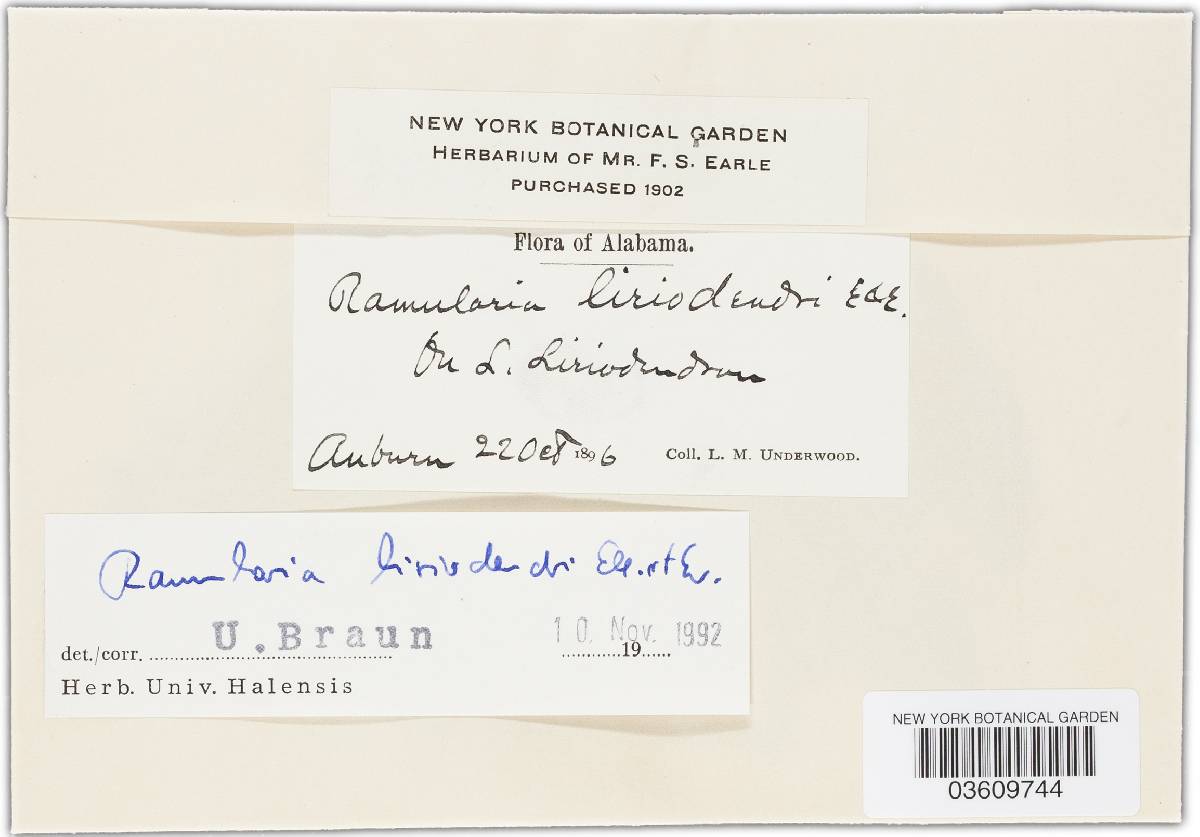 NEW YORK BOTANICAL GARDEN
HERBARIUM OF MR. F. S. EARLE
PURCHASED 1902
Flora of Alabama.
Ramularia liriodendri E&E.
On L. Liriodendron
Auburn 22 Oct 1896 Coll. L. M. UNDERWOOD.
Ramularia liriodendri Ell. et Ev.
det./corr. U. Braun 10. Nov. 1992
19
Herb. Univ. Halensis
NEW YORK BOTANICAL GARDEN
03609744